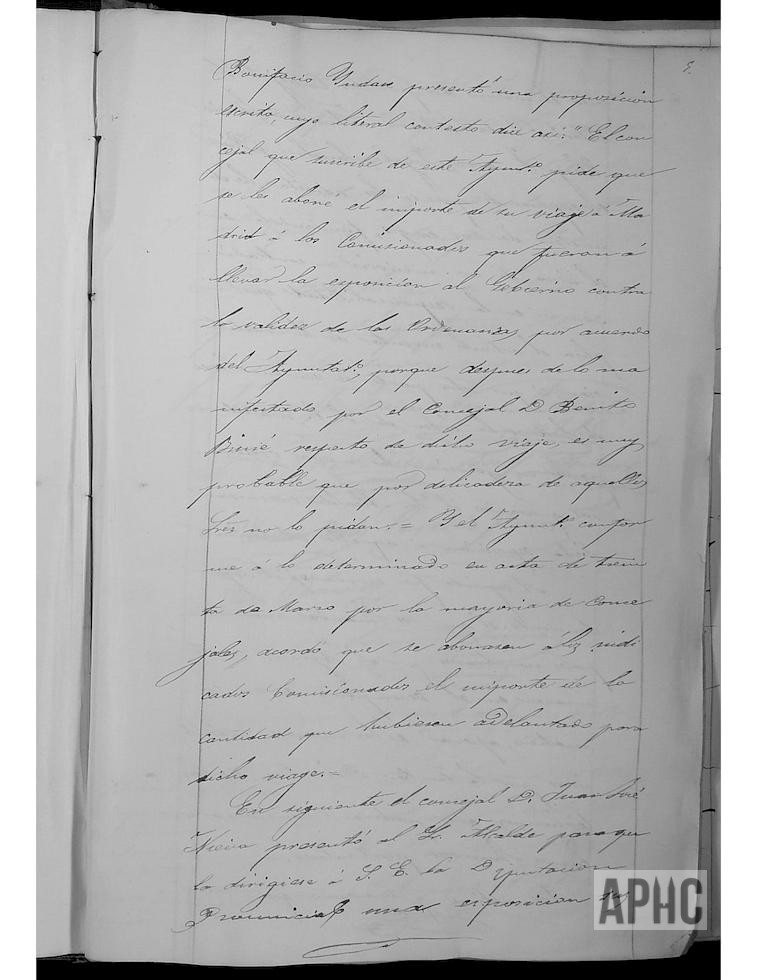 8.
Bonifacio presentó una proposición
escrita, cuyo literal contesto dice así: "El con
cejal que suscribe de este Ayunt.º pide que
se les abone el importe de su viaje á Ma
drid á los Comisionados que fueron á
llevar la exposición al Gobierno contra
la validez de las Ordenanzas, por acuerdo
del Ayuntat.º, porque despues de lo ma
nifestado por el Concejal D. Benito
respecto de dicho viaje, es muy
probable que por delicadeza de aquellos
Sres no lo pidan. = Y el Ayunt.º confor
me á lo determinado en acta de trein
ta de Marzo por la mayoria de Conce
jales, acordó que se abonasen á los indi
cados Comisionados el importe de la
cantidad que hubiesen adelantado para
dicho viaje. =
En siguiente el concejal D. Juan José
Nieva presentó al Sr. Alcalde para que
la dirigiese á S. E. la Diputacion
Provincial una exposicion
APHC